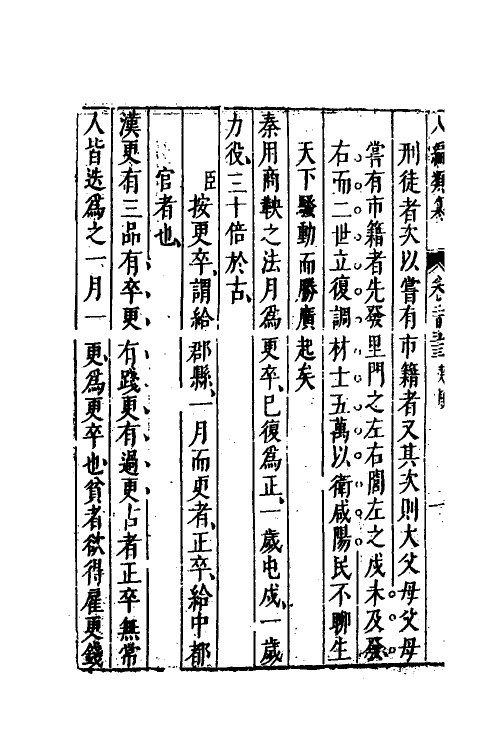 編類纂 卷
刑徒者次以嘗有市籍者又其次則大父母父母
嘗有市籍者先發里門之左右閭左之戍未及發
右而二世立復調材士五萬以衛咸陽民不聊生
天下騷動而勝廣起矣
秦用商鞅之法月爲更卒、已復爲正、一歲屯戍、一歲
力役、三十倍於古、
臣按更卒、謂給郡縣、一月而更者、正卒、給中都
官者也、
漢更有三品、有卒更、有踐更、有過更、古者正卒無常
人皆迭爲之、一月一更、爲更卒也、貧者欲得雇更錢